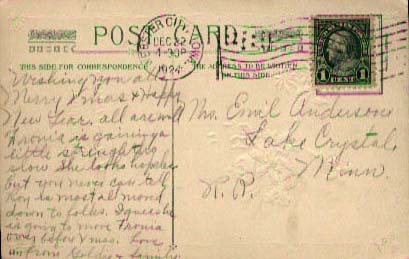 POST CARD
WEBSTER CITY, IOWA.
DEC 22
1-30P
1924
THIS SIDE FOR CORRESPONDENCE
THE ADDRESS TO BE WRITTEN ON THIS SIDE
1 CENT 1
Wishing you all
Merry Xmas & Happy
New Year. all are well
is gaining a
little strength
slow She looks hopeless
but you never can tell
Roy is most all moved
down to folks. I guess he
is going to move
over before Xmas. Love
from Goldie & family
Mrs. Emil Anderson
Lake Crystal,
Minn.
R. R.